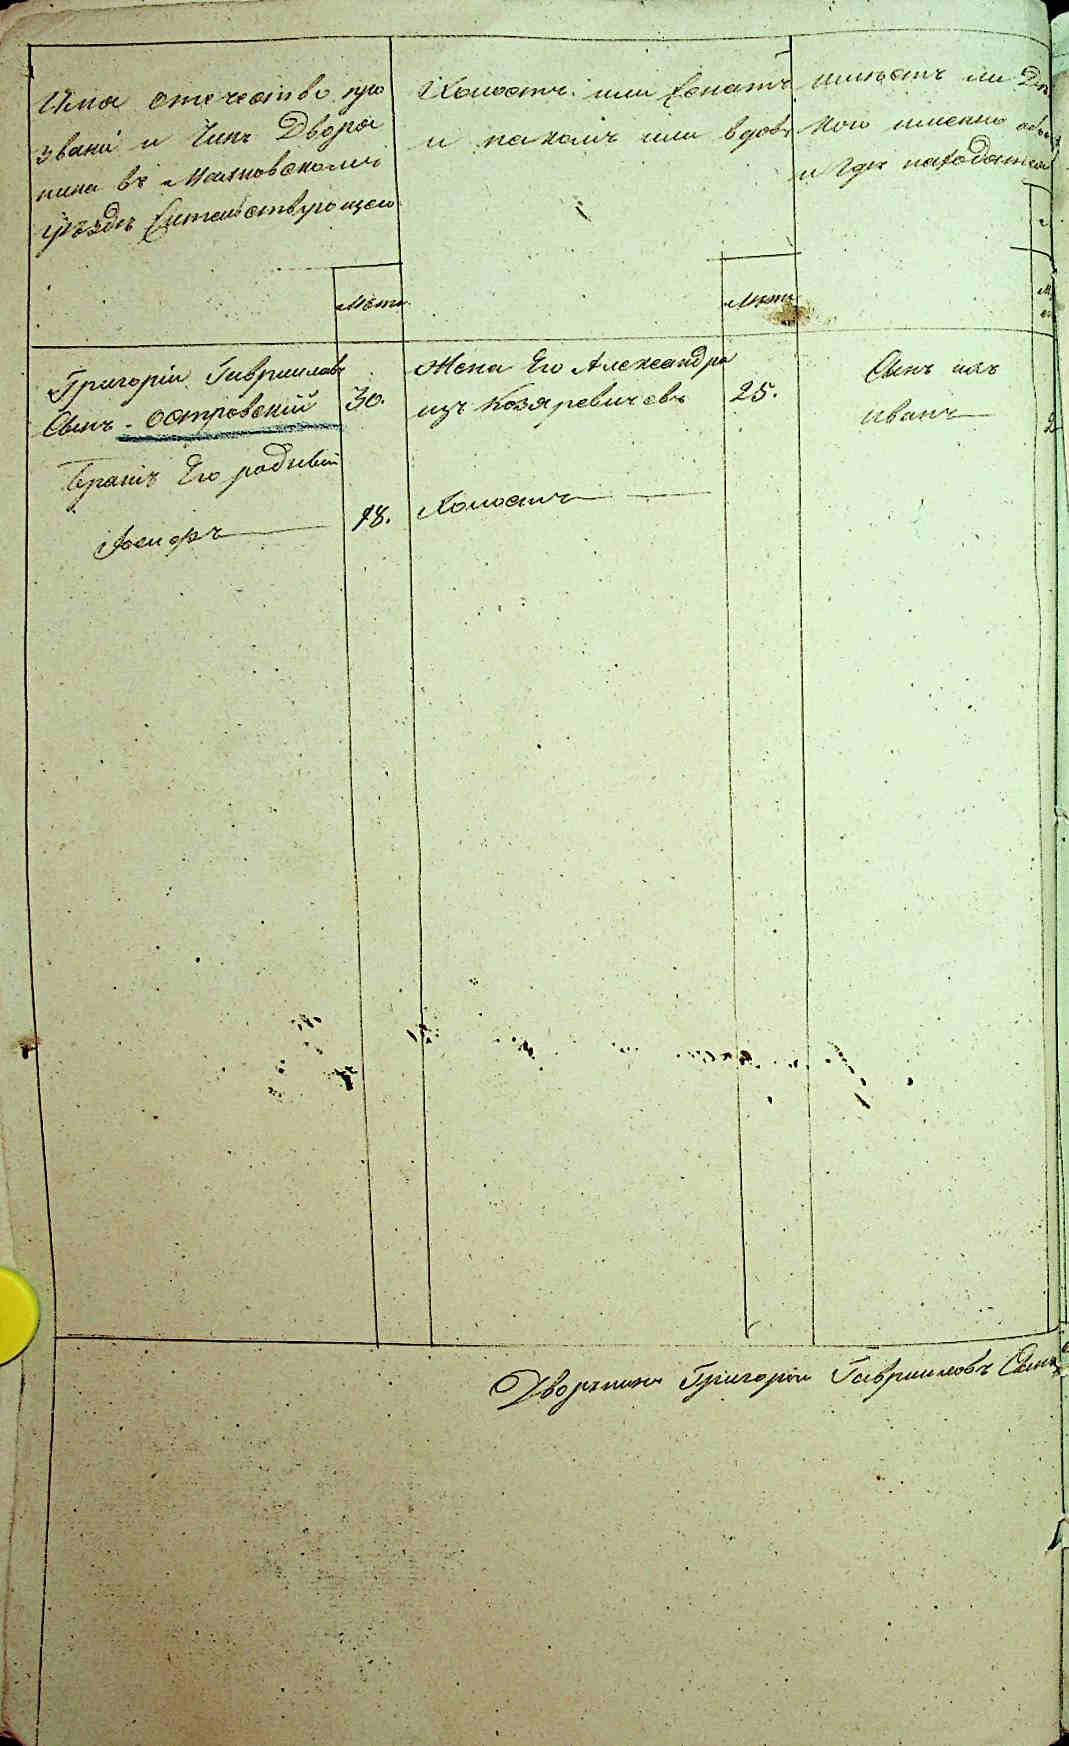 Имя отечество про
звание и Чинъ Дворя
нина въ Махновскомъ
уѣздѣ Жительствующаго
Лѣта
Холостъ или Женатъ
и на комъ или вдовъ
Лѣта
имѣетъ ли
кого именно
и Где находятся
Григорій Гавриловъ
Сынъ Островский
30.
Жена Его Александра
изъ Козяревичевъ
25.
Сынъ ихъ
Иванъ
Братъ Его родный
Іосифъ
18.
Холостъ
Дворянинъ Григорій Гавриловъ Сынъ